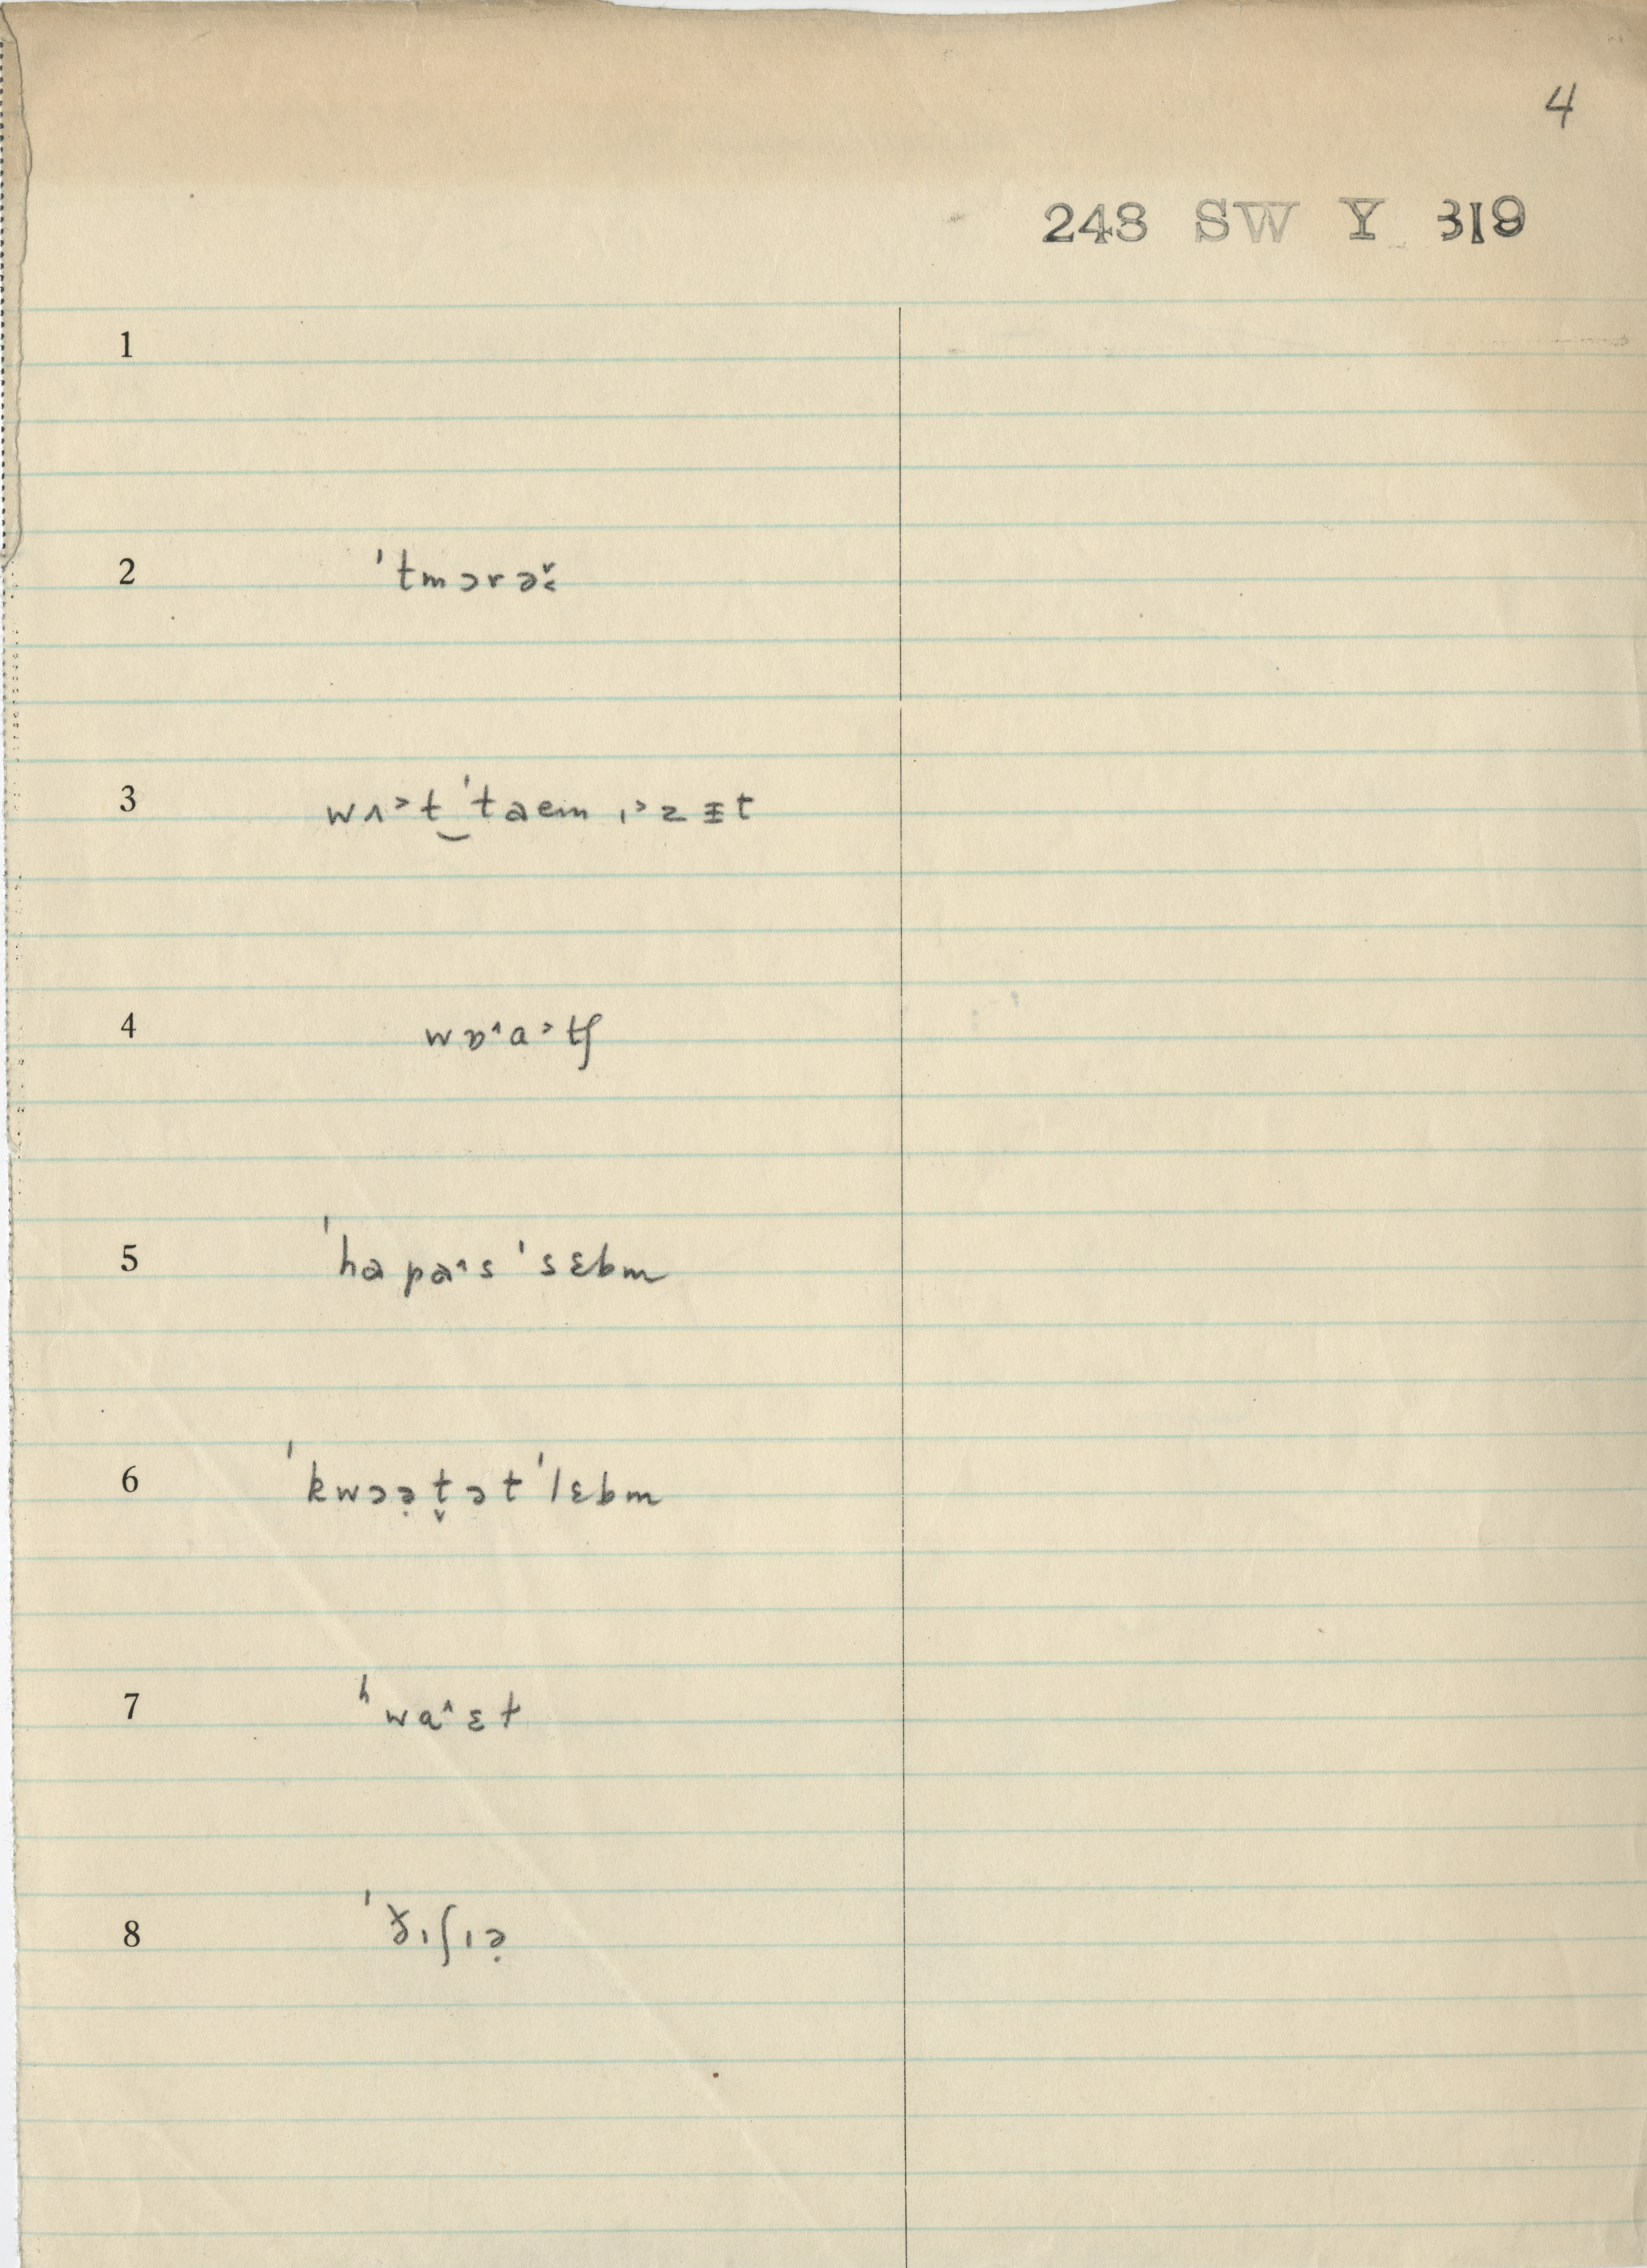 4
248 SW Y 319
1
2 ˈtmɔrəˇ̣<
3 wʌ˃t‿ˈtaem ɪ˃z ɪ̵t
4 wɒ˄a˃tʃ
5 ˈhapa˄s ˈsɛbm
6 ˈkwɔə̣t̬ət ˈlɛbm
7 ʰwa˄ɛt